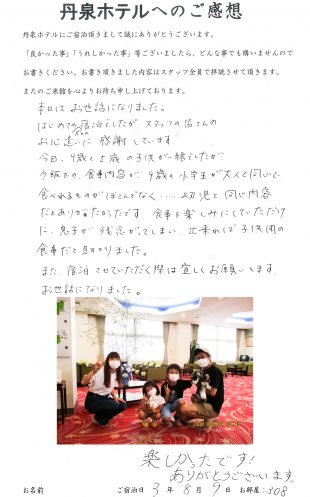 丹泉ホテルへのご感想
丹泉ホテルにご宿泊頂きまして誠にありがとうございます。
「良かった事」「うれしかった事」等ございましたら、どんな事でも構いませんので
お書きください。お書き頂きました内容はスタッフ全員で拝読させて頂きます。
またのご来館を心よりお待ち申し上げております。
本日はお世話になりました。
はじめての宿泊でしたが スタッフの皆さんの
お心遣いに 感謝しています。
今日、9歳と5歳の子供が一緒でしたが
今旅での、食事内容が 9歳の小学生が大人と同じく
食べれるものがほとんどなく……幼児と同じ内容
だとありがたかったです。食事を楽しみにしていただけ
に、息子が残念がってしまい、出来れば子供用の
食事だと助かりました。
また、宿泊させていただく際は宜しくお願いします。
お世話になりました。
楽しかったです!
ありがとうございます。
お名前
ご宿泊日 3 年 8 月 9 日 お部屋:308